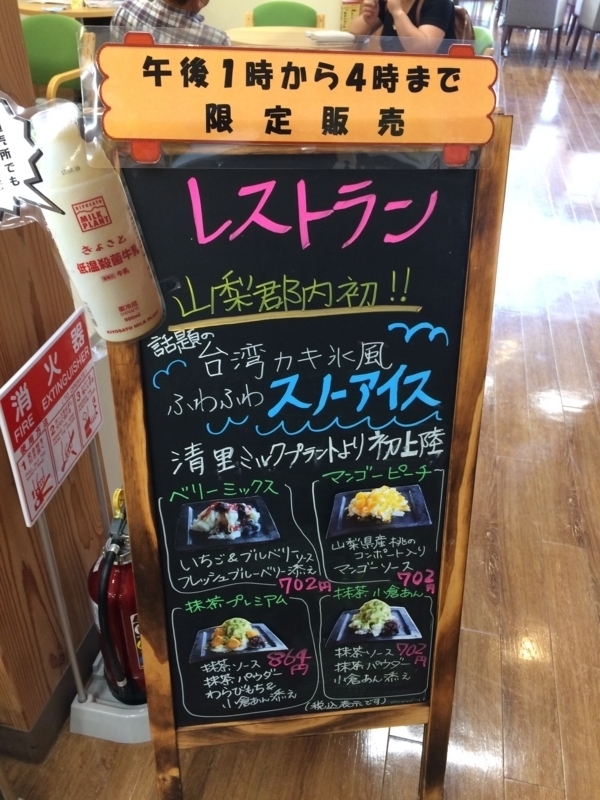 午後1時から4時まで
限定販売
売所でも
レストラン
山梨郡内初!!
話題の
台湾カキ氷風
ふわふわ スノーアイス
清里ミルクプラントより初上陸
ベリーミックス
いちご&ブルーベリーソース
フレッシュブルーベリー添え
702円
マンゴーピーチ
山梨県産桃の
コンポート入り
マンゴーソース
702円
抹茶プレミアム
抹茶ソース
抹茶パウダー
わらびもち&
小倉あん添え
864円
抹茶小倉あん
抹茶ソース
抹茶パウダー
小倉あん添え
702円
(税込表示です)
MILK PLANT
きよさと
低温殺菌牛乳
消火器
FIRE EXTINGUISHER